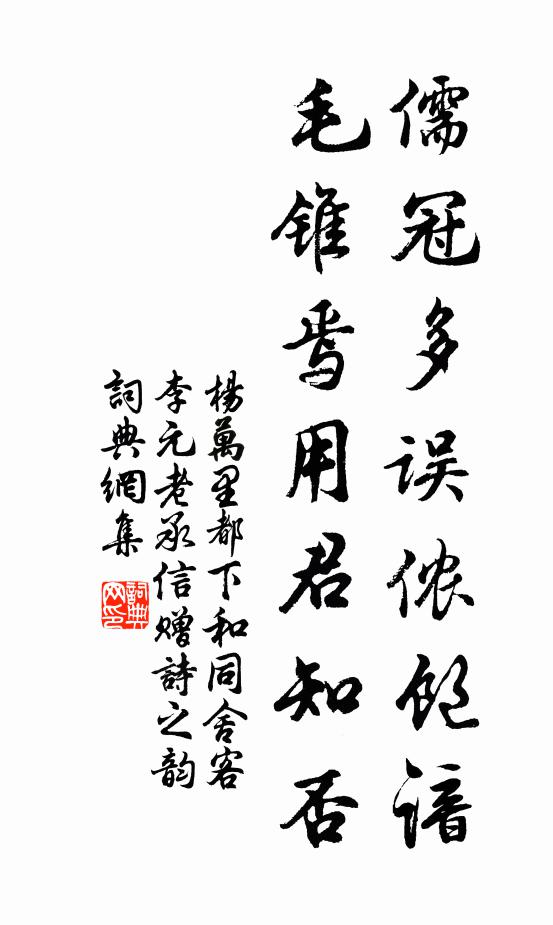 儒冠多误侬饱谙
毛锥焉用君知否
楊萬里都下和同舍客
李元老承信贈詩之韵
詞典網集
詞典网印